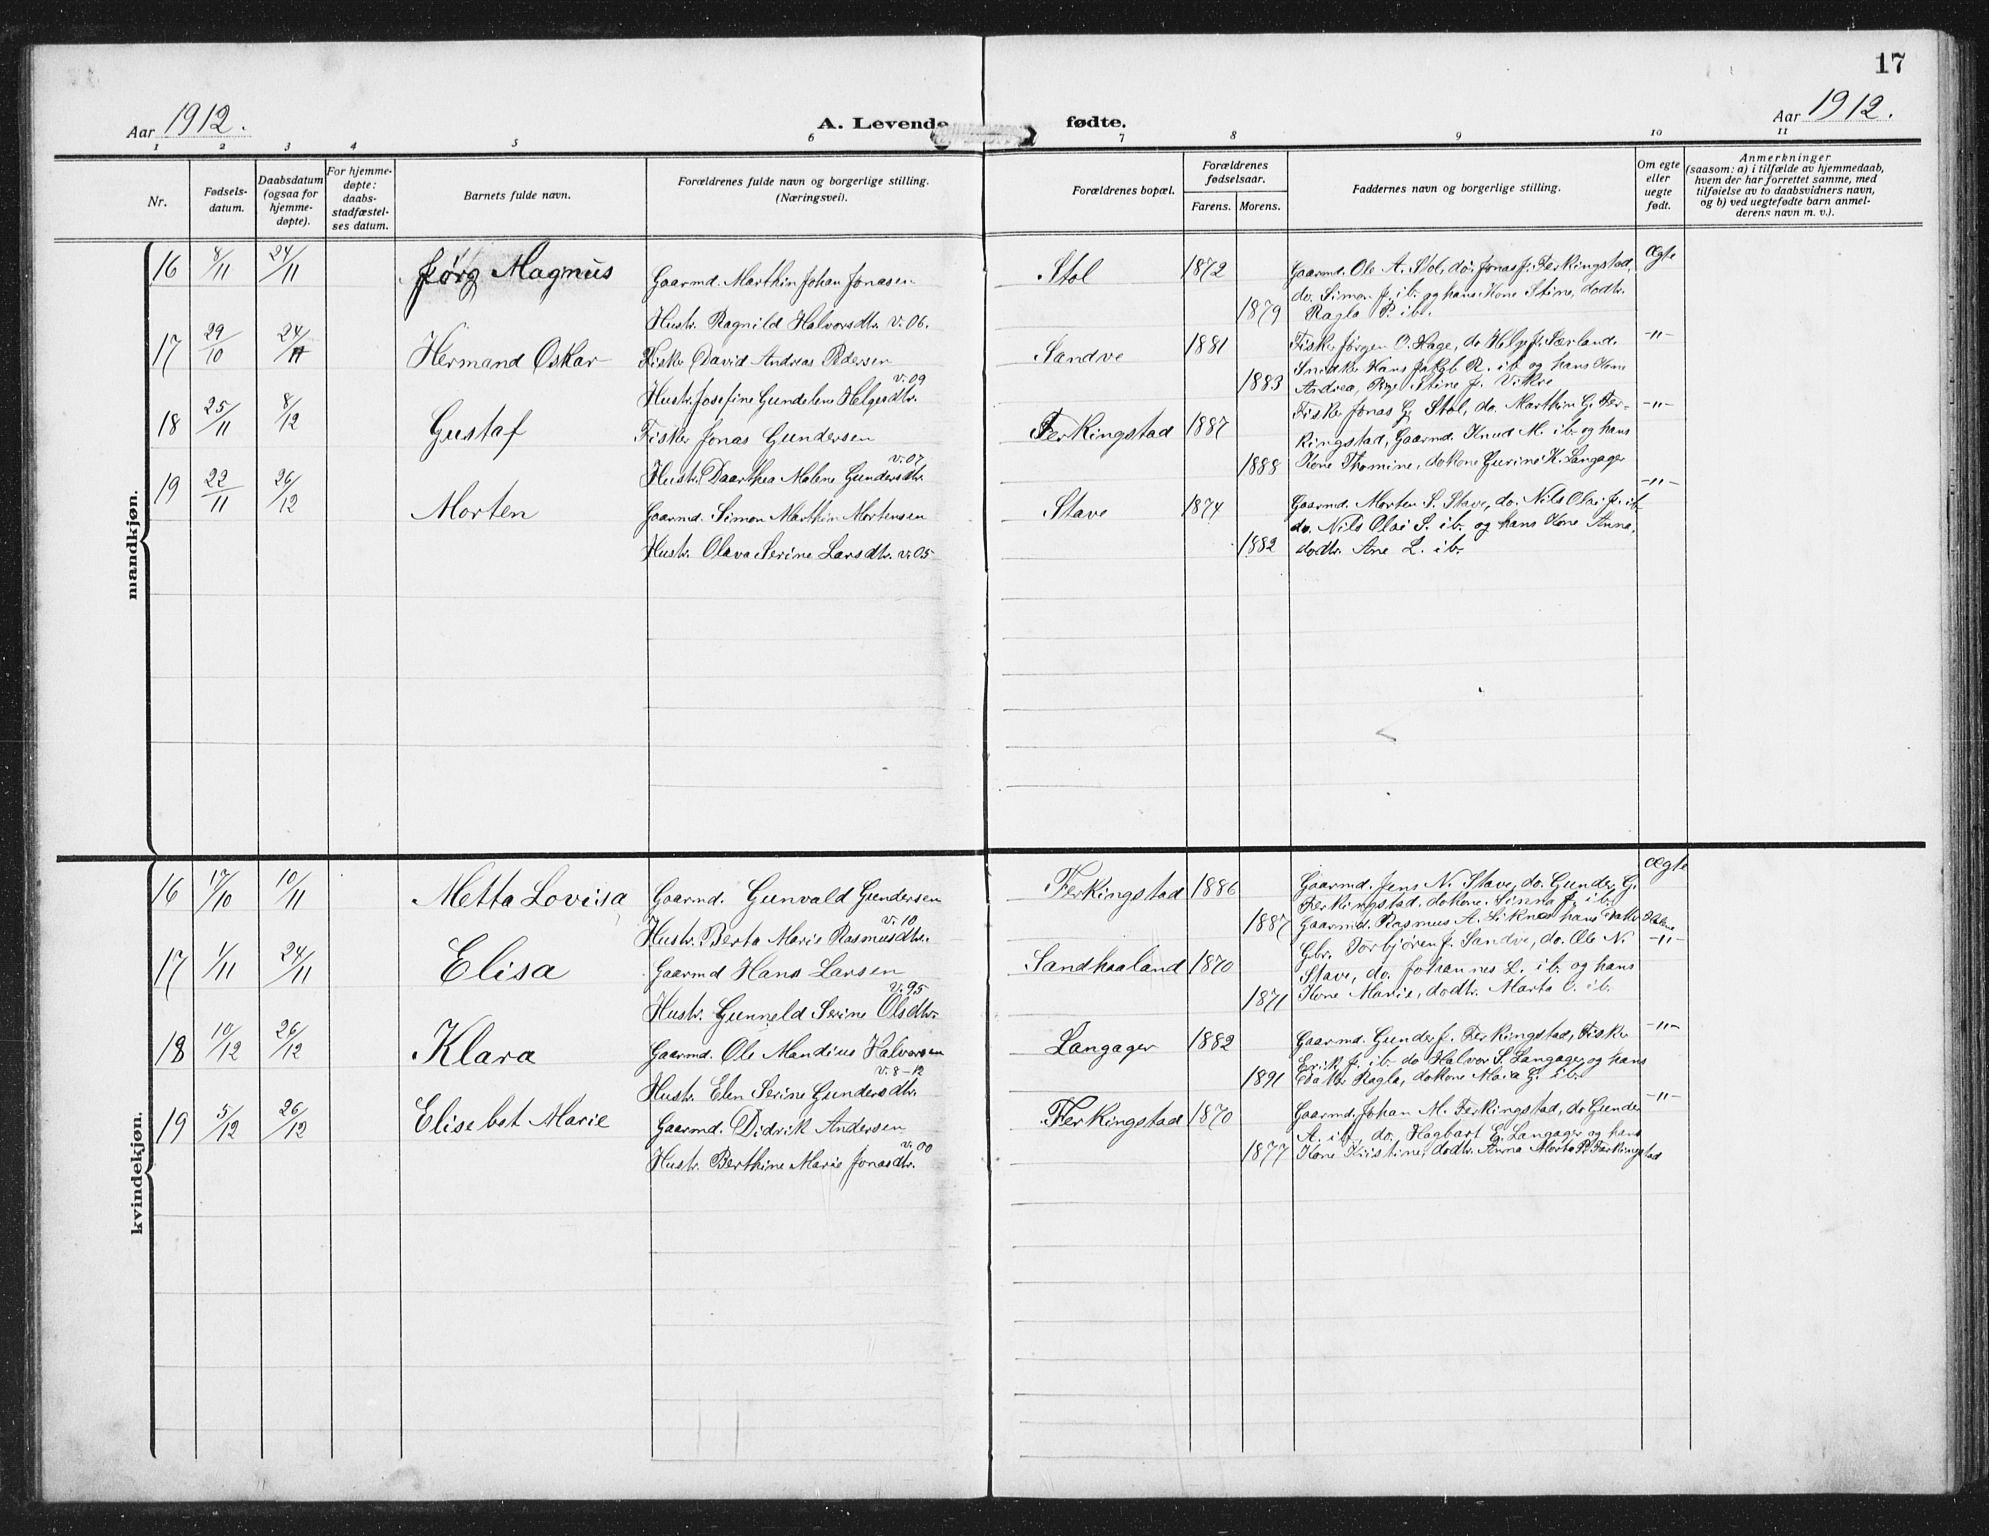 17
Aar 1912. A. Levende fødte. Aar 1912.
1 2 3 4 5 6 7 8 9 10 11
Nr.
Fødsels-
datum.
Daabsdatum
(ogsaa for
hjemme-
døpte).
For hjemme-
døpte:
daabs-
stadfæstel-
ses datum.
Barnets fulde navn.
Forældrenes fulde navn og borgerlige stilling.
(Næringsvei).
Forældrenes bopæl.
Forældrenes
fødselsaar.
Farens. Morens.
Faddernes navn og borgerlige stilling.
Om egte
eller
uegte
født.
Anmerkninger
(saasom: a) i tilfælde av hjemmedaab,
hvem der har forrettet samme, med
tilføielse av to daabsvidners navn,
og b) ved uegtefødte barn anmel-
derens navn m. v.).
mandkjøn.
16 8/11 24/11 Jørg Magnus
Gaarmd. Marthin Johan Jonasen
Hustr. Ragnild Halvorsdtr. v. 06.
Stol 1872 1879
Gaarmd. Ole A. Stol, do. Jonas J. Ferkingstad,
do. Simon J. ib. og hans Kone Stine, dodtr.
Ragla P. ib.
Ægte
17 29/10 24/11 Hermand Oskar
Fisker David Andreas Pedersen
v. 09
Hustr. Josefine Gundelene Helgesdtr.
Sandve 1881 1883
Fisker Jørgen O. Hage, do Helge J. Særland.
Snedker Hans Jakob R. ib og hans Kone
Andrea, Pige Stine J. Vikre
-"-
18 25/11 8/12 Gustaf
Fisker Jonas Gundersen
v. 07
Hustr. Daarthea Malene Gundersdtr.
Ferkingstad 1887 1888
Fisker Jonas G. Stol, do. Marthin G. Fer-
kingstad, Gaarmd. Knud M. ib. og hans
Kone Thomine, dokone Gurine K. Langager
-"-
19 22/11 26/12 Morten
Gaarmd. Simon Marthin Mortensen
Hustr. Olava Serine Larsdtr. v. 05
Stave 1874 1882
Gaarmd. Morten S. Stave, do. Nils Olai J. ib
do. Nils Olai S. ib. og hans Kone Anna,
dodtr. Ane L. ib.
-"-
kvindekjøn.
16 17/10 10/11 Metta Lovisa
Gaarmd. Gunvald Gundersen
v. 10
Hustr. Berta Marie Rasmusdtr.
Ferkingstad 1886 1887
Gaarmd. Jens N. Stave, do. Gunder G.
Ferkingstad. dokone. Sinna J. ib.
Gaarmd. Rasmus A. Liknes hans Datter
Ægte
17 1/11 24/11 Elisa
Gaarmd Hans Larsen
v. 95
Hustr. Gunneld Serine Olsdtr.
Sandhaaland 1870 1871
Gbr. Torbjøren J. Sandve, do. Ole N.
Stave, do. Johannes L. ib. og hans
Kone Marie, dodtr. Marta O. ib.
-"-
18 10/12 26/12 Klara
Gaarmd. Ole Mandius Halvorsen
v. 8-12
Hustr. Elen Serine Gundersdtr.
Langager 1882 1891
Gaarmd. Gunder J. Ferkingstad, Fisker
Erik J. ib. do Halvor S. Langager og hans
Datter Ragla, dokone Mara G. ib.
-"-
19 5/12 26/12 Elisebet Marie
Gaarmd. Didrik Andersen
v. 00
Hustr. Berthine Marie Jonasdtr.
Ferkingstad 1870 1877
Gaarmd. Johan M. Ferkingstad, do Gunder
A. ib., do. Hagbart E. Langager og hans
Kone Kristine, dodtr. Anna Marta P. Ferkingstad
-"-